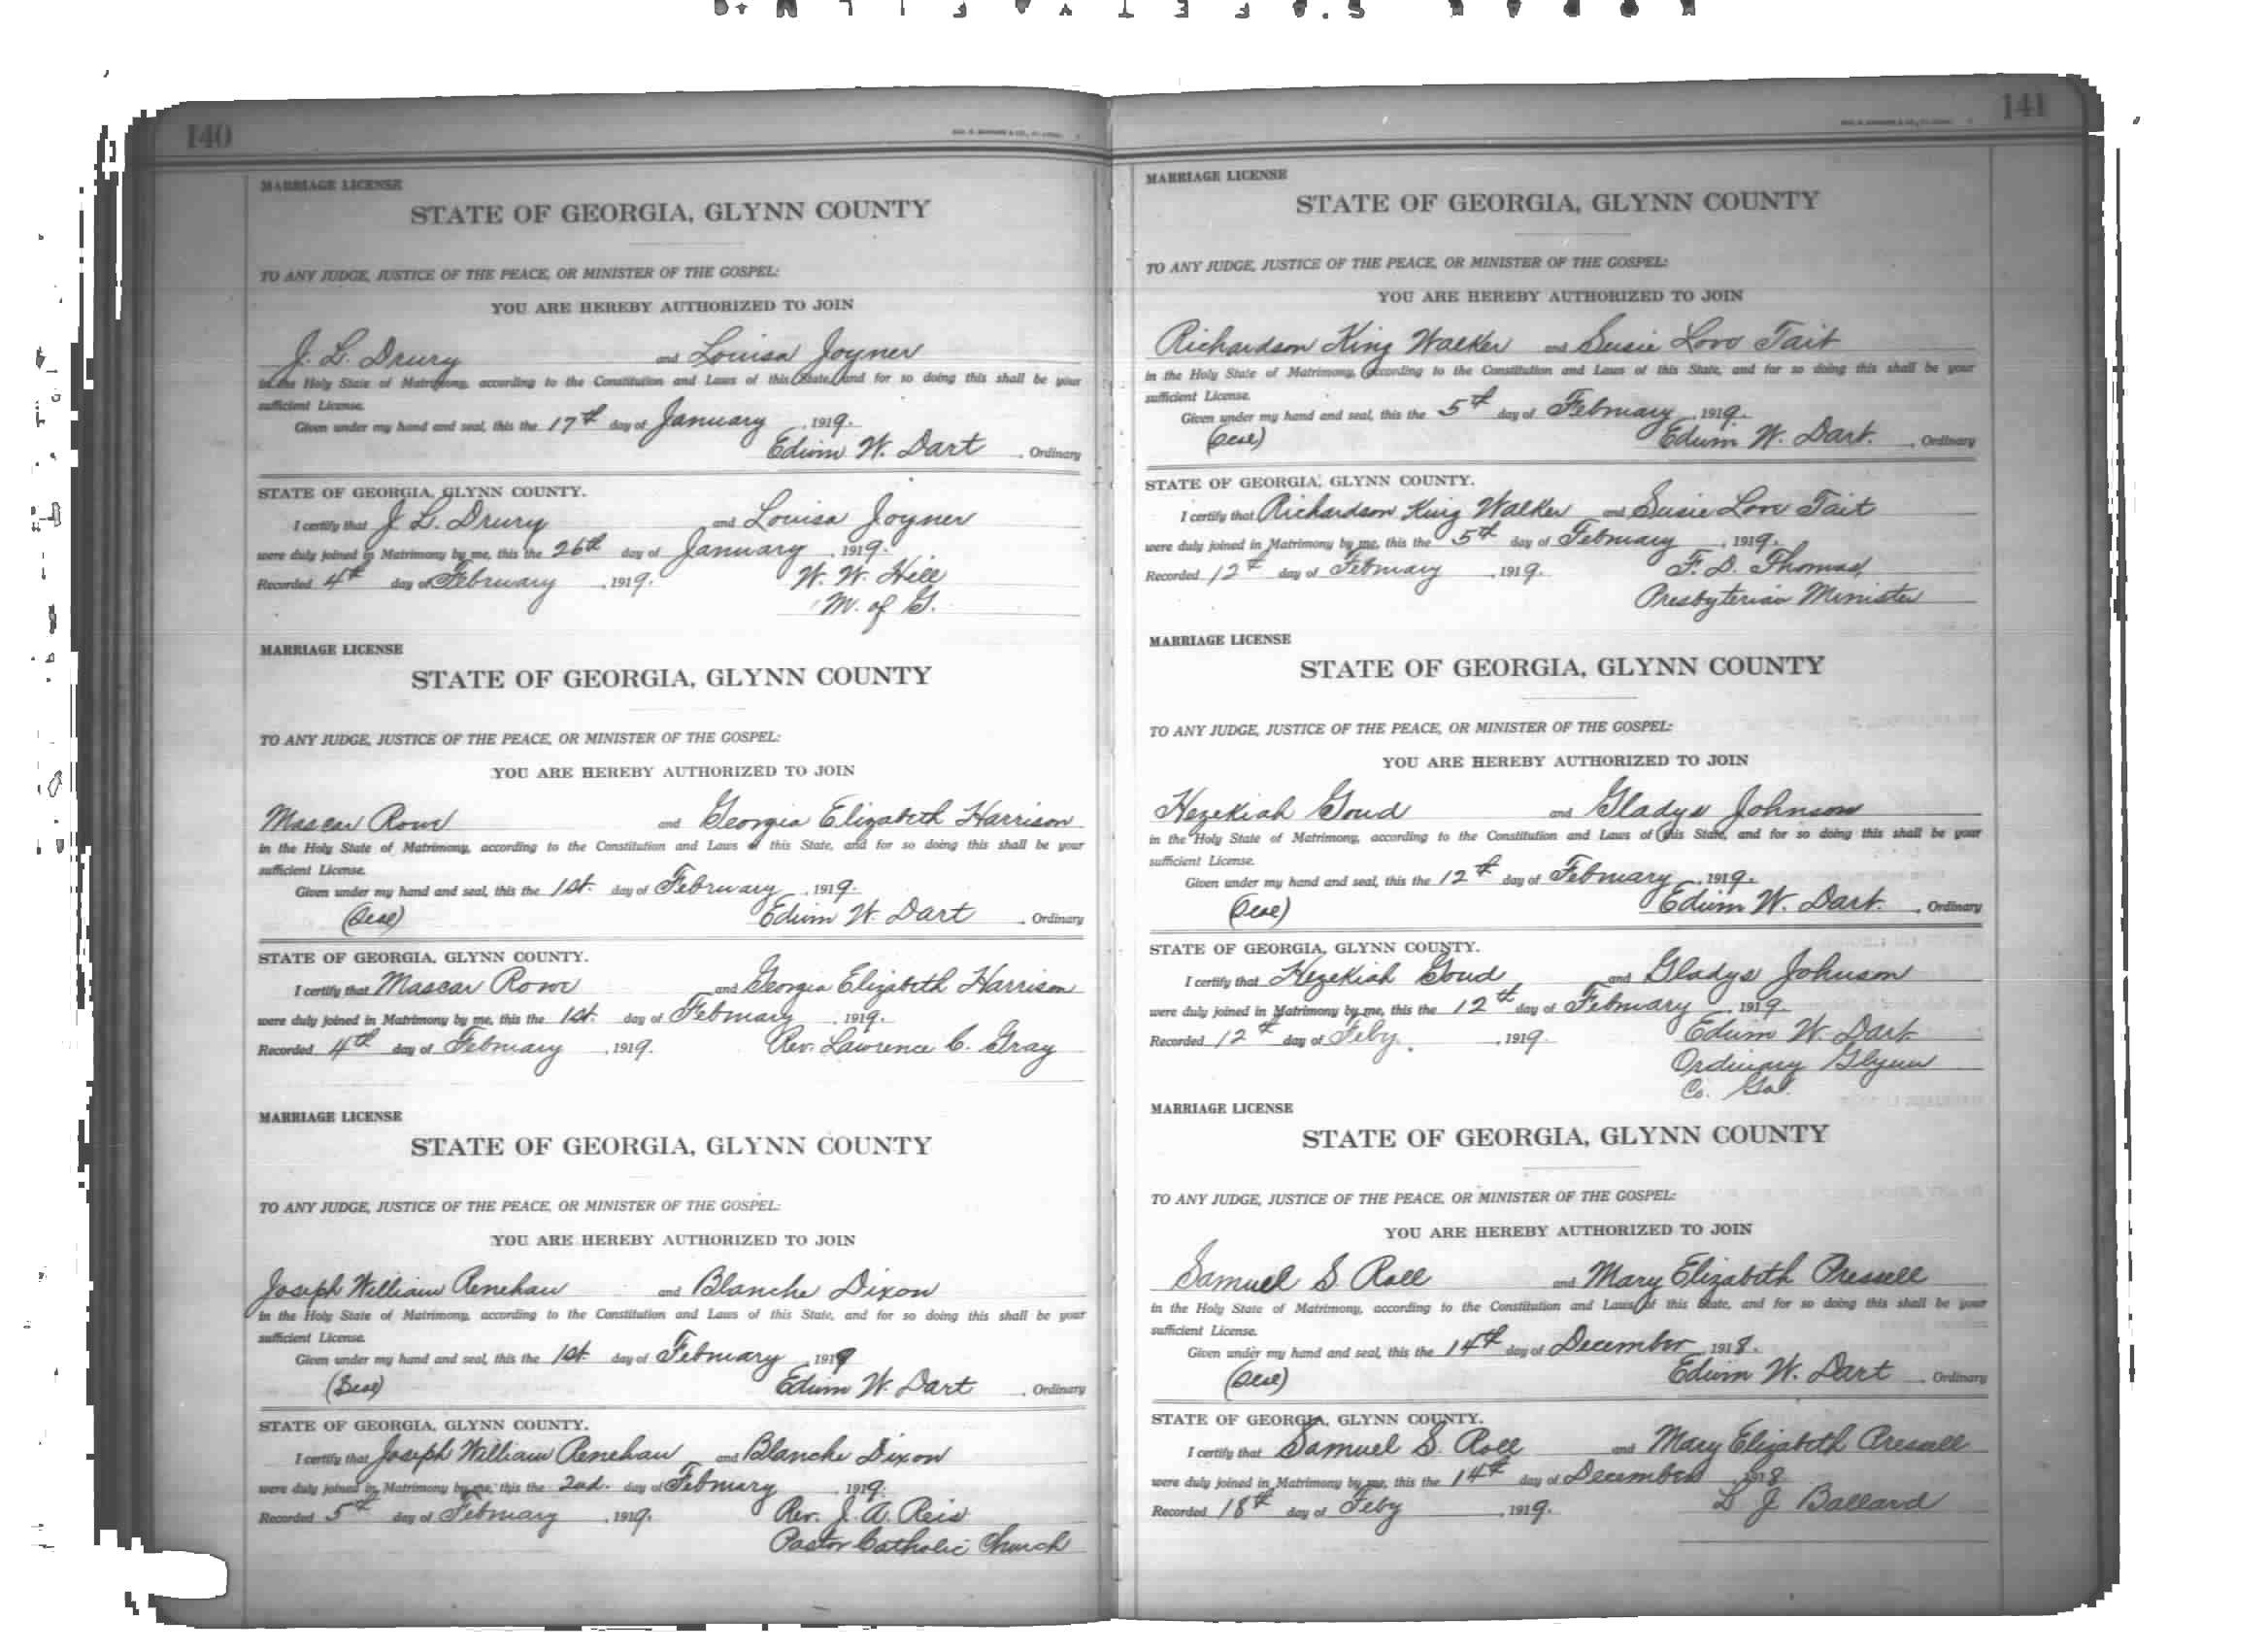 140
MARRIAGE LICENSE
STATE OF GEORGIA, GLYNN COUNTY
TO ANY JUDGE, JUSTICE OF THE PEACE, OR MINISTER OF THE GOSPEL:
YOU ARE HEREBY AUTHORIZED TO JOIN
J. L. Drury and Louisa Joyner
in the Holy State of Matrimony, according to the Constitution and Laws of this State, and for so doing this shall be your
sufficient License.
Given under my hand and seal, this the 17th day of January, 1919.
Edwin W. Dart, Ordinary
STATE OF GEORGIA, GLYNN COUNTY.
I certify that J L. Drury and Louisa Joyner
were duly joined in Matrimony by me, this the 26th day of January, 1919.
Recorded 4th day of February, 1919. W. W. Hill
M. of G.
MARRIAGE LICENSE
STATE OF GEORGIA, GLYNN COUNTY
TO ANY JUDGE, JUSTICE OF THE PEACE, OR MINISTER OF THE GOSPEL:
YOU ARE HEREBY AUTHORIZED TO JOIN
Mascar Rowe and Georgia Elizabeth Harrison
in the Holy State of Matrimony, according to the Constitution and Laws of this State, and for so doing this shall be your
sufficient License.
Given under my hand and seal, this the 1st. day of February, 1919.
(Seal) Edwin W. Dart, Ordinary
STATE OF GEORGIA, GLYNN COUNTY.
I certify that Mascar Rowe and Georgia Elizabeth Harrison
were duly joined in Matrimony by me, this the 1st. day of February, 1919.
Recorded 4th day of February, 1919. Rev. Lawrence C. Gray
MARRIAGE LICENSE
STATE OF GEORGIA, GLYNN COUNTY
TO ANY JUDGE, JUSTICE OF THE PEACE, OR MINISTER OF THE GOSPEL:
YOU ARE HEREBY AUTHORIZED TO JOIN
Joseph William Renehan and Blanche Dixon
in the Holy State of Matrimony, according to the Constitution and Laws of this State, and for so doing this shall be your
sufficient License.
Given under my hand and seal, this the 1st. day of February 1919
(Seal) Edwin W. Dart, Ordinary
STATE OF GEORGIA, GLYNN COUNTY.
I certify that Joseph William Renehan and Blanche Dixon
were duly joined in Matrimony by me, this the 2nd. day of February, 1919.
Recorded 5th day of February, 1919. Rev. J. A. Reis
Pastor Catholic Church
141
MARRIAGE LICENSE
STATE OF GEORGIA, GLYNN COUNTY
TO ANY JUDGE, JUSTICE OF THE PEACE, OR MINISTER OF THE GOSPEL:
YOU ARE HEREBY AUTHORIZED TO JOIN
Richardson King Walker and Susie Love Tait
in the Holy State of Matrimony, according to the Constitution and Laws of this State, and for so doing this shall be your
sufficient License.
Given under my hand and seal, this the 5th day of February, 1919.
(Seal) Edwin W. Dart., Ordinary
STATE OF GEORGIA, GLYNN COUNTY.
I certify that Richardson King Walker and Susie Love Tait
were duly joined in Matrimony by me, this the 5th day of February, 1919.
Recorded 12th day of February, 1919. F. D. Thomas,
Presbyterian Minister
MARRIAGE LICENSE
STATE OF GEORGIA, GLYNN COUNTY
TO ANY JUDGE, JUSTICE OF THE PEACE, OR MINISTER OF THE GOSPEL:
YOU ARE HEREBY AUTHORIZED TO JOIN
Hezekiah Goud and Gladys Johnson
in the Holy State of Matrimony, according to the Constitution and Laws of this State, and for so doing this shall be your
sufficient License.
Given under my hand and seal, this the 12th day of February, 1919.
(Seal) Edwin W. Dart., Ordinary
STATE OF GEORGIA, GLYNN COUNTY.
I certify that Hezekiah Goud and Gladys Johnson
were duly joined in Matrimony by me, this the 12th day of February, 1919.
Recorded 12th day of Feby., 1919. Edwin W. Dart
Ordinary Glynn
Co. Ga.
MARRIAGE LICENSE
STATE OF GEORGIA, GLYNN COUNTY
TO ANY JUDGE, JUSTICE OF THE PEACE, OR MINISTER OF THE GOSPEL:
YOU ARE HEREBY AUTHORIZED TO JOIN
Samuel S. Roll and Mary Elizabeth Pressell
in the Holy State of Matrimony, according to the Constitution and Laws of this State, and for so doing this shall be your
sufficient License.
Given under my hand and seal, this the 14th day of December, 1918.
(Seal) Edwin W. Dart, Ordinary
STATE OF GEORGIA, GLYNN COUNTY.
I certify that Samuel S. Roll and Mary Elizabeth Pressell
were duly joined in Matrimony by me, this the 14th day of December, 1918
Recorded 18th day of Feby, 1919. L J Ballard